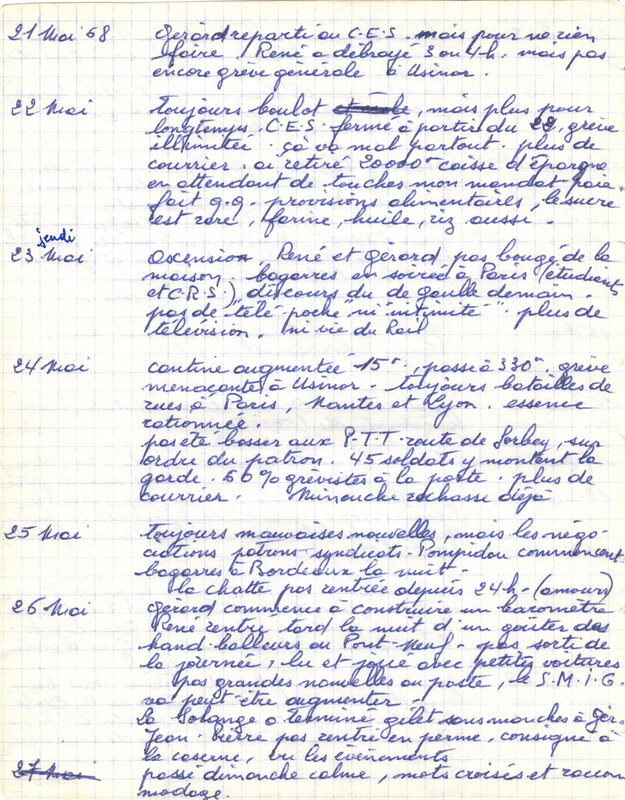 21 Mai 68 Gérard reparti au C.E.S. mais pour ne rien
faire. René a débrayé 3 ou 4h, mais pas
encore grève générale à Usinor.
22 Mai toujours boulot, mais plus pour
longtemps. C.E.S. fermé à partir du 22, grève
illimitée. çà va mal partout. plus de
courrier. ai retiré 20000 caisse d'Epargne
en attendant de touches mon mandat paie
fait q.q. provisions alimentaires, le sucre
est rare, farine, huile, riz aussi.
jeudi
23 Mai Ascension, René et Gérard pas bougé de la
maison. bagarres en soirée à Paris (étudiants
et C.R.S.) discours du de gaulle demain.
pas de "télé poche" ni "intimité". plus de
télévision. ni vie du Rail
24 Mai cantine augmentée 15, passe à 330. grève
menaçante à Usinor. toujours batailles de
rues à Paris, Nantes et Lyon. essence
rationnée.
pas été bosser aux P.T.T. route de Sorbey, sur
ordre du patron. 45 soldats y montent la
garde. 60% grévistes à la poste. plus de
courrier. Minouche rechasse déjà
25 Mai toujours mauvaises nouvelles, mais les négo-
ciations patrons-syndicats-Pompidou commencent
bagarres à Bordeaux la nuit.
la chatte pas rentrée depuis 24h. (amours)
26 Mai Gérard commence à construire un baromètre
René rentré tard la nuit d'un goûter des
hand-balleurs au Pont-Neuf. pas sorti de
la journée, lu et joué avec petites voitures
pas grandes nouvelles au poste, le S.M.I.G.
va peut-être augmenter.
La Solange a terminé gilet sans manches à Gér.
Jean-Pierre pas rentré en perme, consigné à
la caserne, vu les événements
27 Mai passé dimanche calme, mots croisés et raccom
modage.